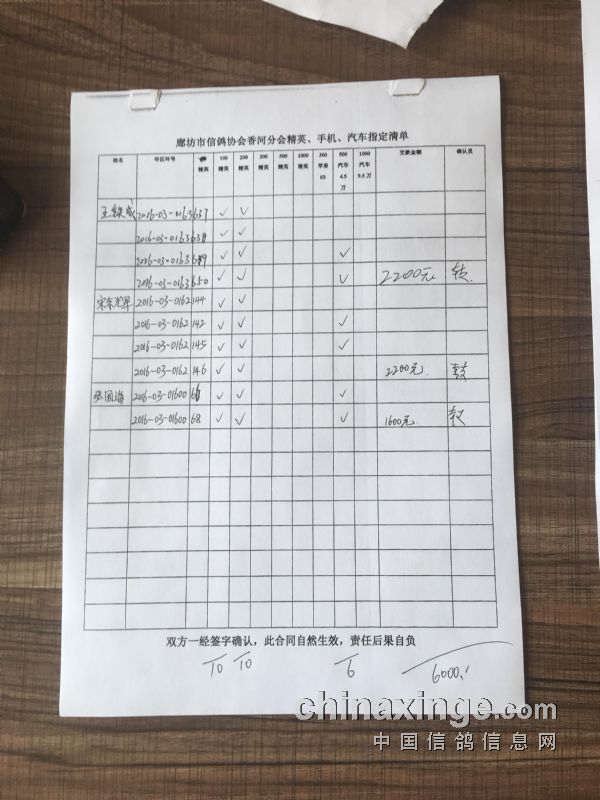 廊坊市信鸽协会香河分会精英、手机、汽车指定清单
姓名 中国环号 精英 100精英 200精英 300精英 500精英 1000精英 300苹果6S 500汽车4.5万 1000汽车9.8万 交款金额 确认员
2016-03-0163657 ✓ ✓
2016-03-0163 ✓ ✓
2016-03-0163 ✓ ✓ ✓
2016-03-0163650 ✓ ✓ ✓ 2200元
2016-03-0162144 ✓ ✓
2016-03-0162142 ✓ ✓ ✓
2016-03-0162145 ✓ ✓ ✓
2016-03-0162146 ✓ ✓ 2200元.
2016-03-01600 ✓ ✓ ✓
2016-03-0160068 ✓ ✓ ✓ 1600元.
双方一经签字确认，此合同自然生效，责任后果自负
10 10 6 6000.
chinaxinge.com
中国信鸽信息网